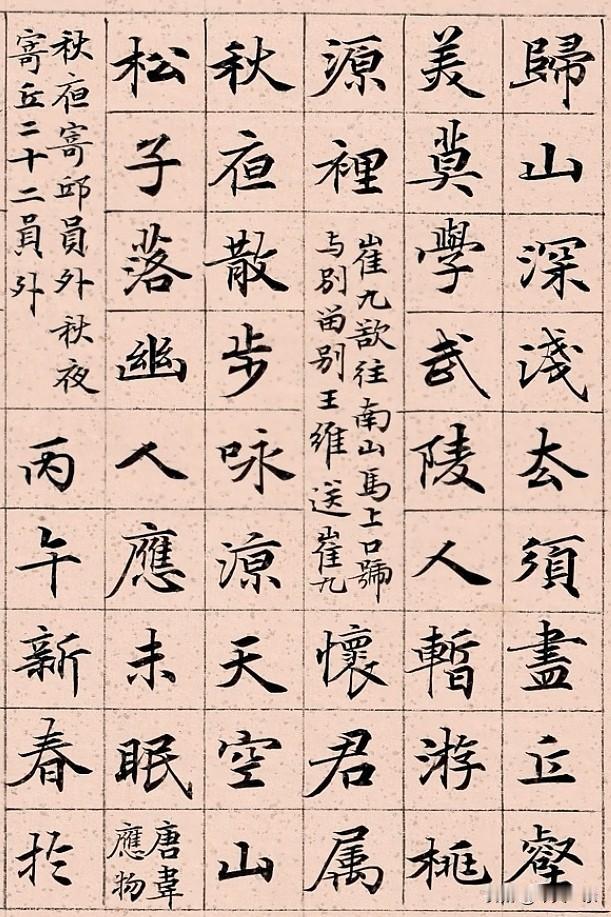 歸山深淺去須盡丘壑
美莫學武陵人暫游桃
源裡
崔九欲往南山馬上口號
与別留別王維送崔九
懷君属
秋夜散步咏凉天空山
松子落幽人應未眠
唐韋
應物
秋夜寄邱員外秋夜
寄丘二十二員外
丙午新春於